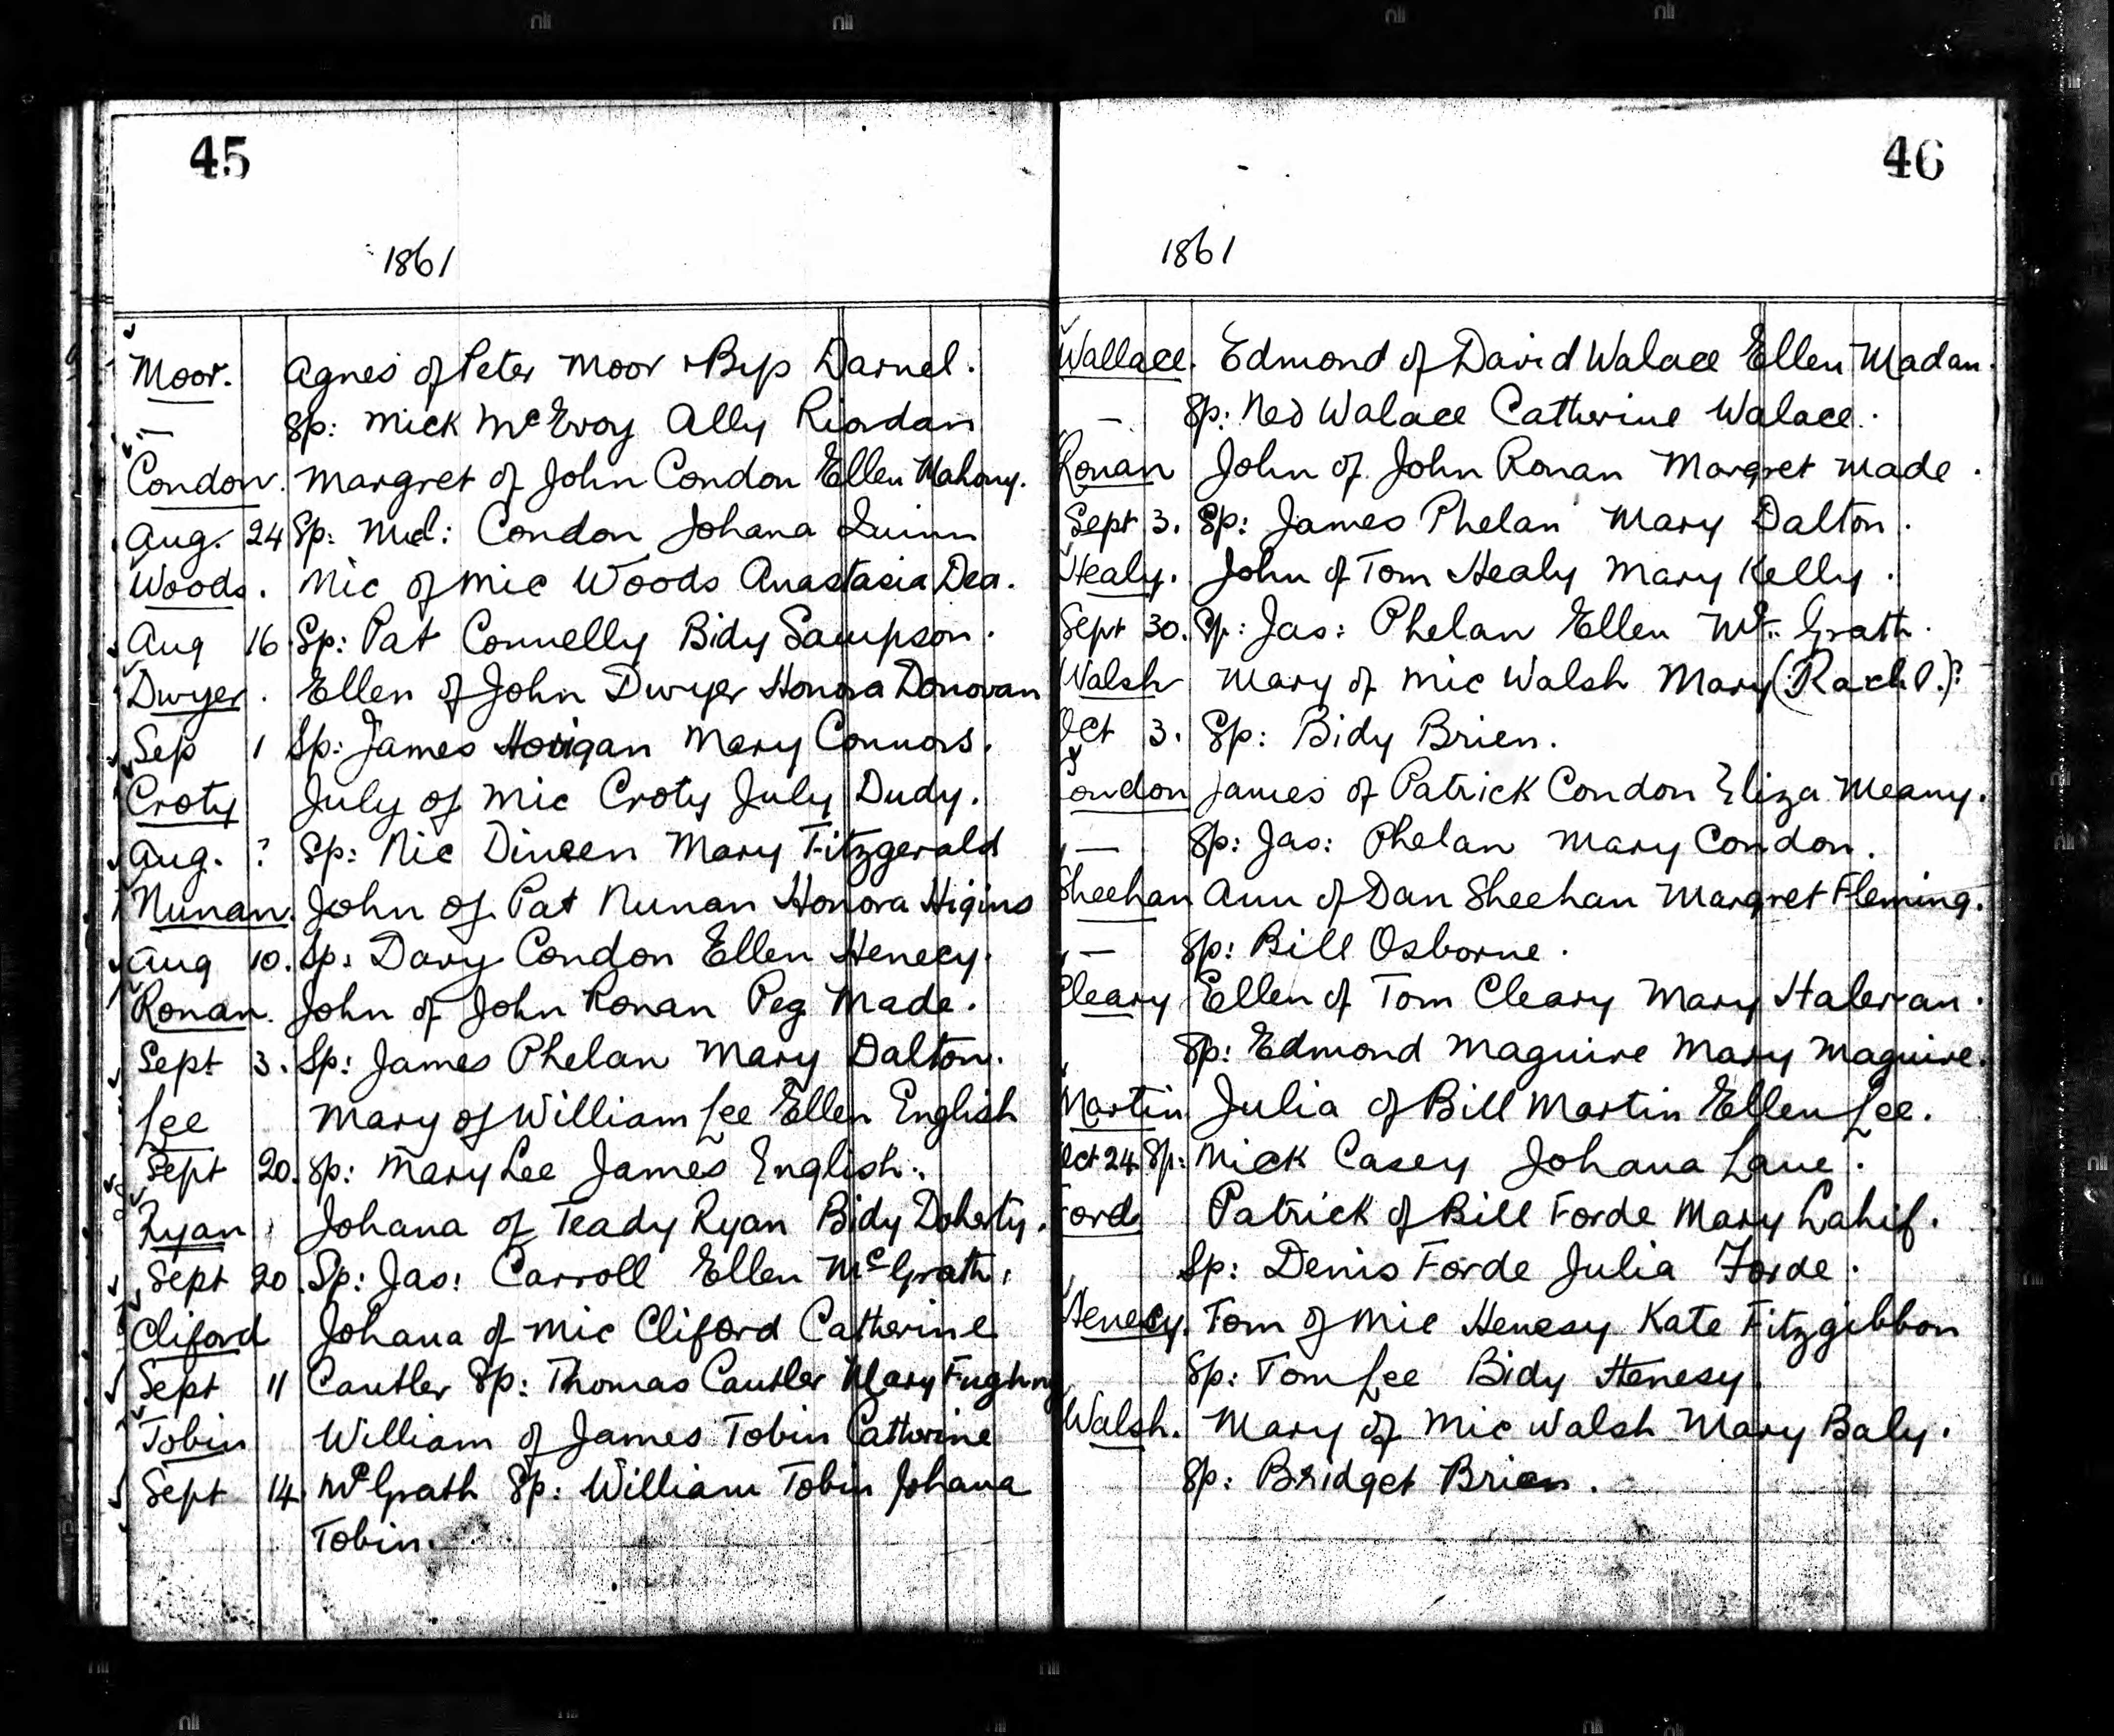 45
1861
Moor. Agnes of Peter Moor & Darnel.
— Sp: Mick McEvoy Ally Riordan
Condon. Margret of John Condon Ellen Mahony.
Aug. 24 Sp: Condon Johana Quinn
Woods. Mic of Mic Woods Anastasia Dea.
Aug 16. Sp: Pat Connelly Bidy Sampson.
Dwyer. Ellen of John Dwyer Honora Donovan
Sep 1 Sp: James Horigan Mary Connors.
Croty July of Mic Croty July Dudy.
Aug. ? Sp: Nic Dineen Mary Fitzgerald
Nunan. John of Pat Nunan Honora Higins
Aug 10. Sp: Davy Condon Ellen Henecy.
Ronan. John of John Ronan Peg Made.
Sept 3. Sp: James Phelan Mary Dalton.
Lee Mary of William Lee Ellen English
Sept 20. Sp: Mary Lee James English.
Ryan Johana of Teady Ryan Bidy Doherty.
Sept 20 Sp: Jas: Carroll Ellen McGrath.
Cliford Johana of Mic Cliford Catherine
Sept 11 Cantler Sp: Thomas Cantler Mary
Tobin William of James Tobin Catherine
Sept 14 McGrath Sp: William Tobin Johana
Tobin.
46
1861
Wallace. Edmond of David Walace Ellen Madan.
— Sp: Ned Walace Catherine Walace.
Ronan John of John Ronan Margret Made.
Sept 3. Sp: James Phelan Mary Dalton.
Healy. John of Tom Healy Mary Kelly.
Sept 30. Sp: Jas: Phelan Ellen Mc Grath.
Walsh Mary of Mic Walsh Mary (Rachl.)?
Oct 3. Sp: Bidy Brien.
Condon James of Patrick Condon Eliza Meany.
— Sp: Jas: Phelan Mary Condon.
Sheehan Ann of Dan Sheehan Margret Fleming.
— Sp: Bill Osborne.
Cleary Ellen of Tom Cleary Mary Haleran.
Sp: Edmond Maguire Mary Maguire.
Martin Julia of Bill Martin Ellen Lee.
Oct 24 Sp: Mick Casey Johana Lane.
Forde Patrick of Bill Forde Mary Lahif.
Sp: Denis Forde Julia Forde.
Henecy. Tom of Mic Henesy Kate Fitzgibbon
Sp: Tom Lee Bidy Henesy
Walsh. Mary of Mic Walsh Mary Baly.
Sp: Bridget Brien.